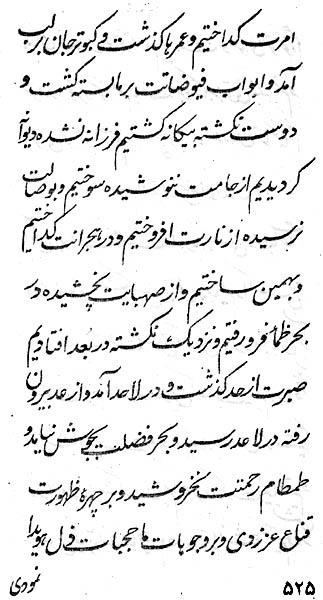 امرت گداختیم و عمرها گذشت و کبوتر جان بر لب
آمد و ابواب فیوضاتت بر ما بسته گشت و
دوست نگشته بیگانه گشتیم فرزانه نشده دیوانه
گردیدیم از جامت ننوشیده سوختیم و بوصالت
نرسیده از نارت افروختیم و در هجرانت گداختیم
و بهمین ساختیم و از صهبایت نچشیده در
بحر ظلماء فرو رفتیم و نزدیک نگشته در بعد افتادیم
صبرت از حد گذشت و در لاحد آمد و از عد بیرون
رفته در لاعد رسید و بحر فضلت بجوش نیامد و
طمطام رحمتت نخروشید و بر چهرهٔ ظهورت
قناع عز زدی و بر وجوهات ما حجبات ذل هویدا
۵۲۵
نمودی